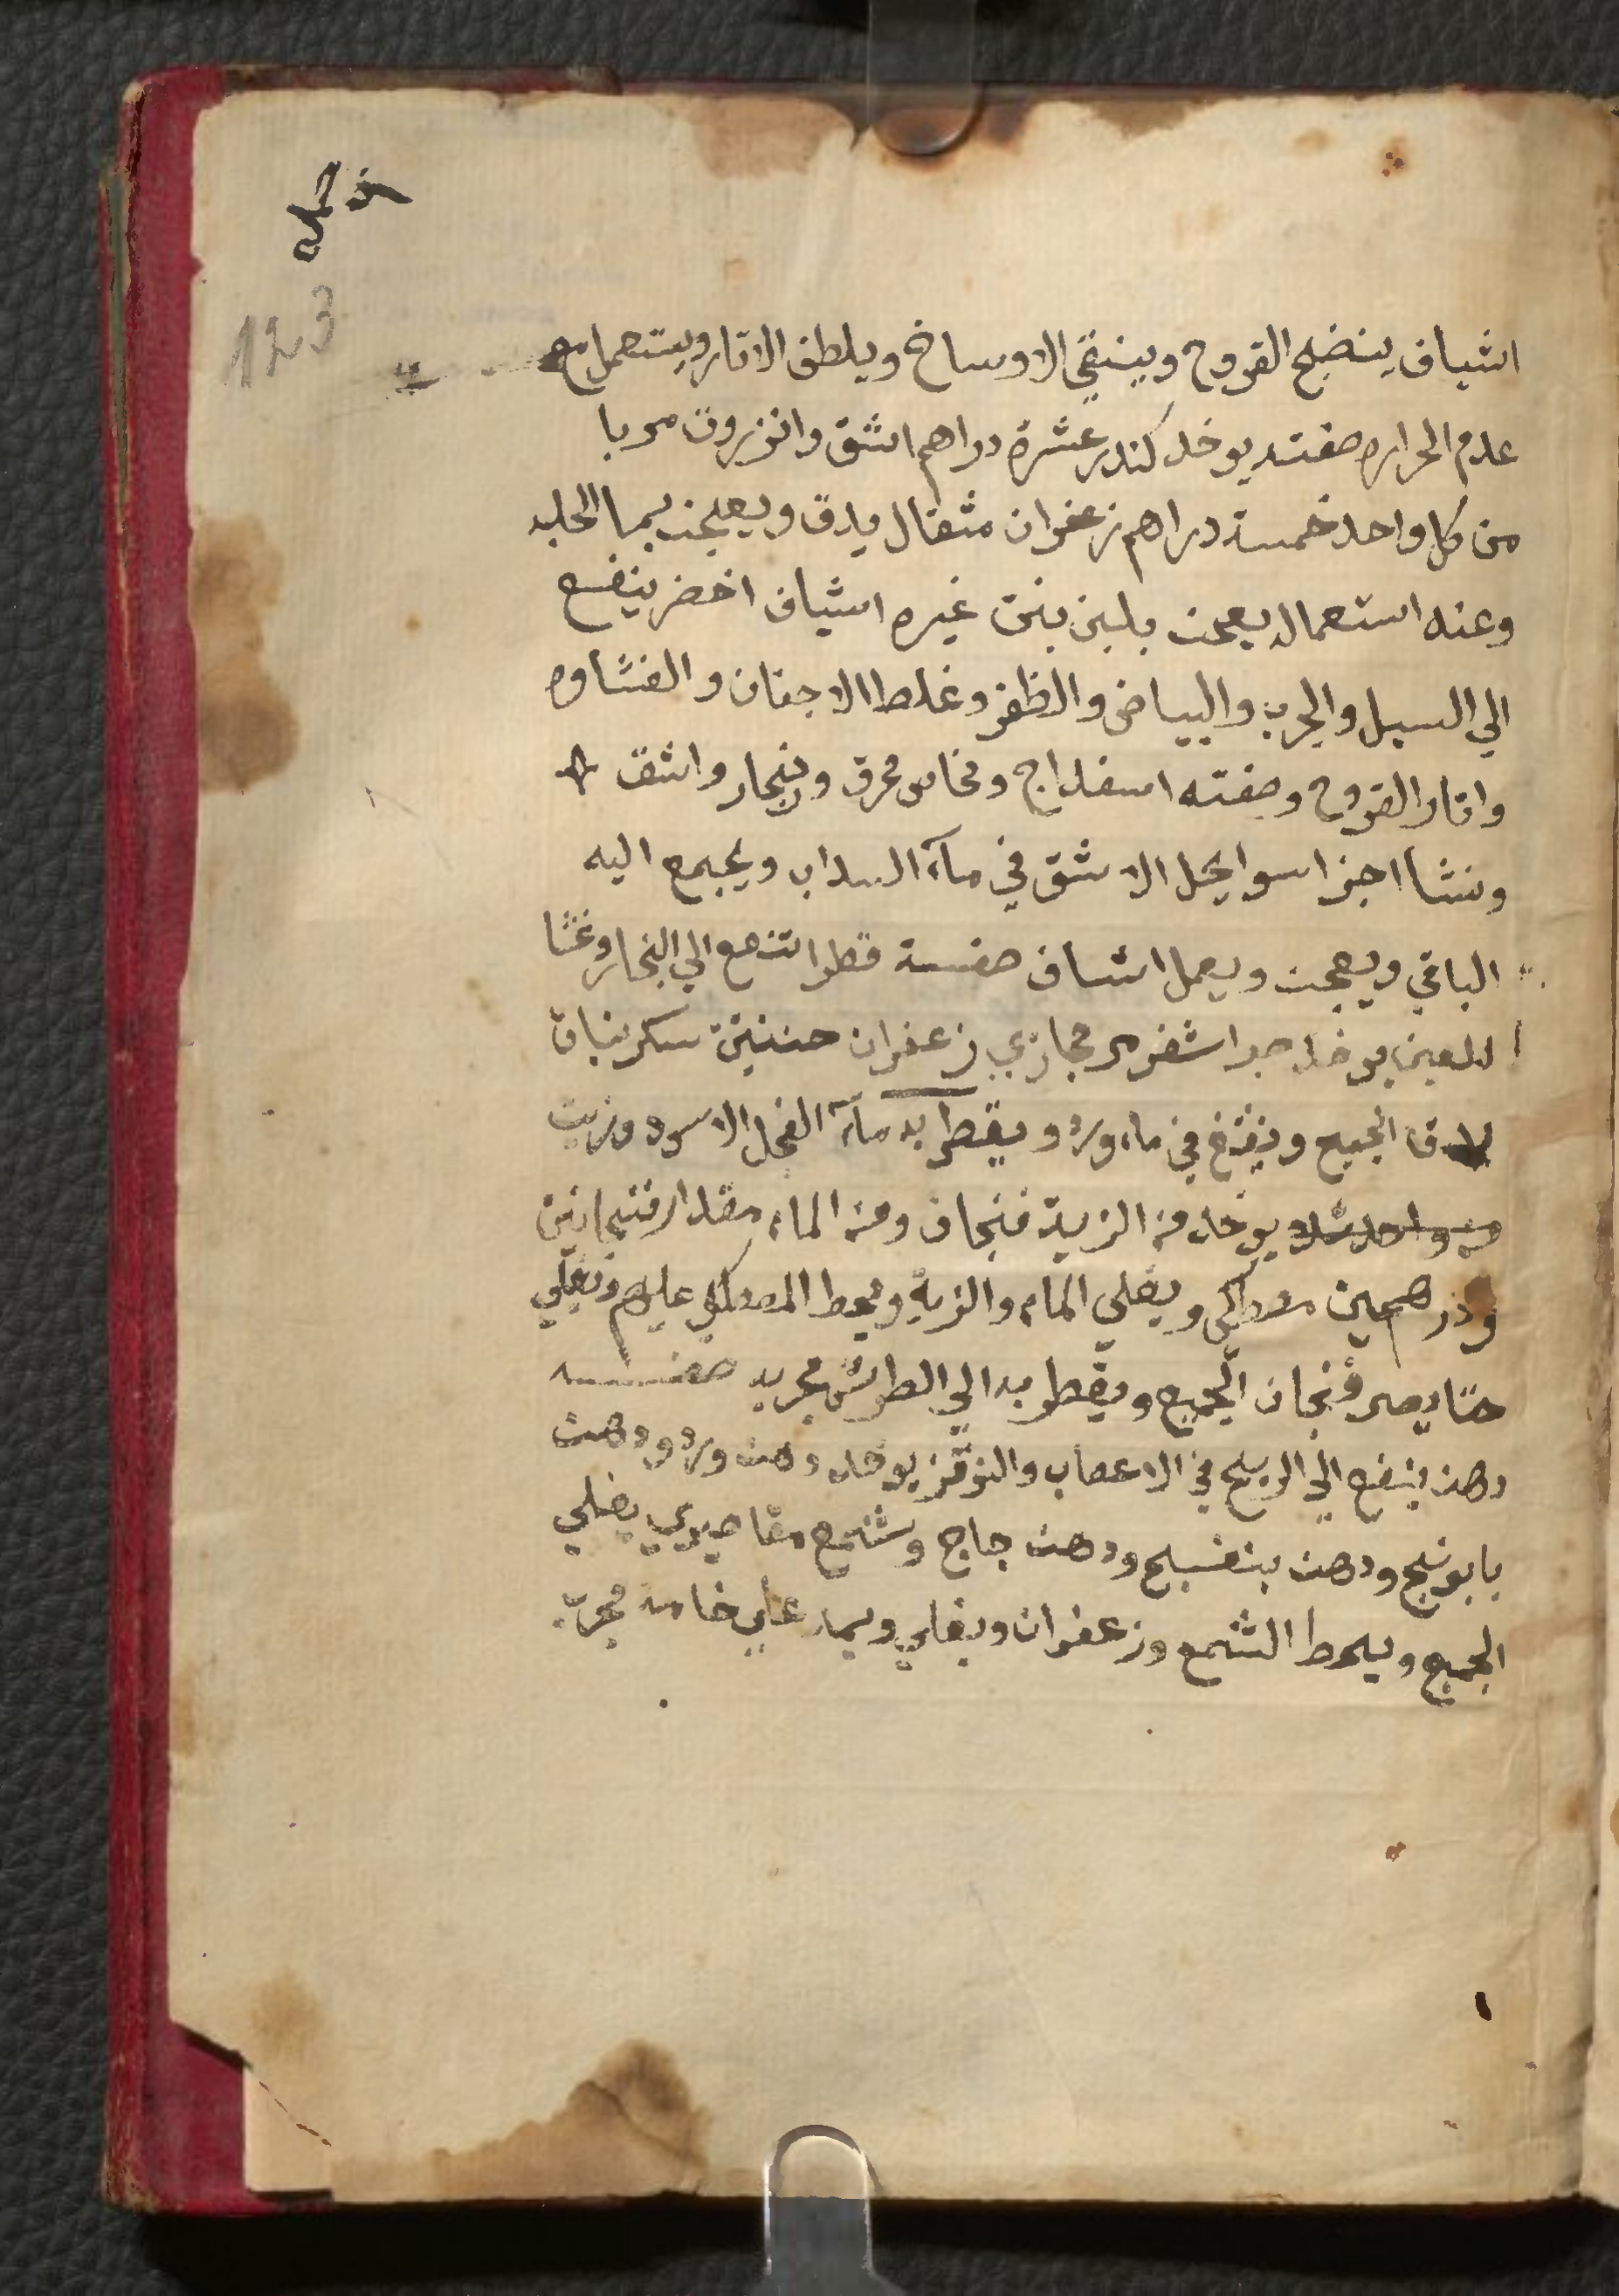 123
اشياف ينضج القروح وينقي الاوساخ ويلطف الاثار ويستعمل مع
عدم الحراره صفته يوخد كندر عشرة دراهم اشق وانزروت مربا
من كل واحد خمسة دراهم زعفران مثقال يدق ويعجن بما الحلبه
وعند استعماله يعجن بلبن بنت غيره اشياف اخضر ينفع
الي السبل والجرب والبياض والظفر وغلط الاجفان والغشاوه
واتار القروح وصفته اسفداج ونحاس محرق وزنجار واشق
ونشا اجزا سوا يحل الاشق في مآء السداب ويجمع اليه
الباقي ويعجن ويعمل اشياف صفـة قطرا تنفع الي البخار وغشا
للعين يوخد صبر اشقر مر حجازي زعفران سكر نبات
يدق الجميع وينقع في ماء ورد ويقطر به مآء الفجل الاسود وزيت
يوخد من الزيت فنجان ومن الماء مقدار فنجانين
ودرهمين مصطكي ويغلي الماء والزيت ويحط المصطكي عليهم ويغلي
حتا يصير فنجان الجميع ويقطر به الي الطرش مجرب صفـــه
دهن ينفع الي الريح في الاعصاب يوخد دهن ورد ودهن
بابونج ودهن بنفسج ودهن جاج وشمع مقاصيري يغلي
الجميع ويحط الشمع وزعفران ويغلي ويمد علي خامه مجرب